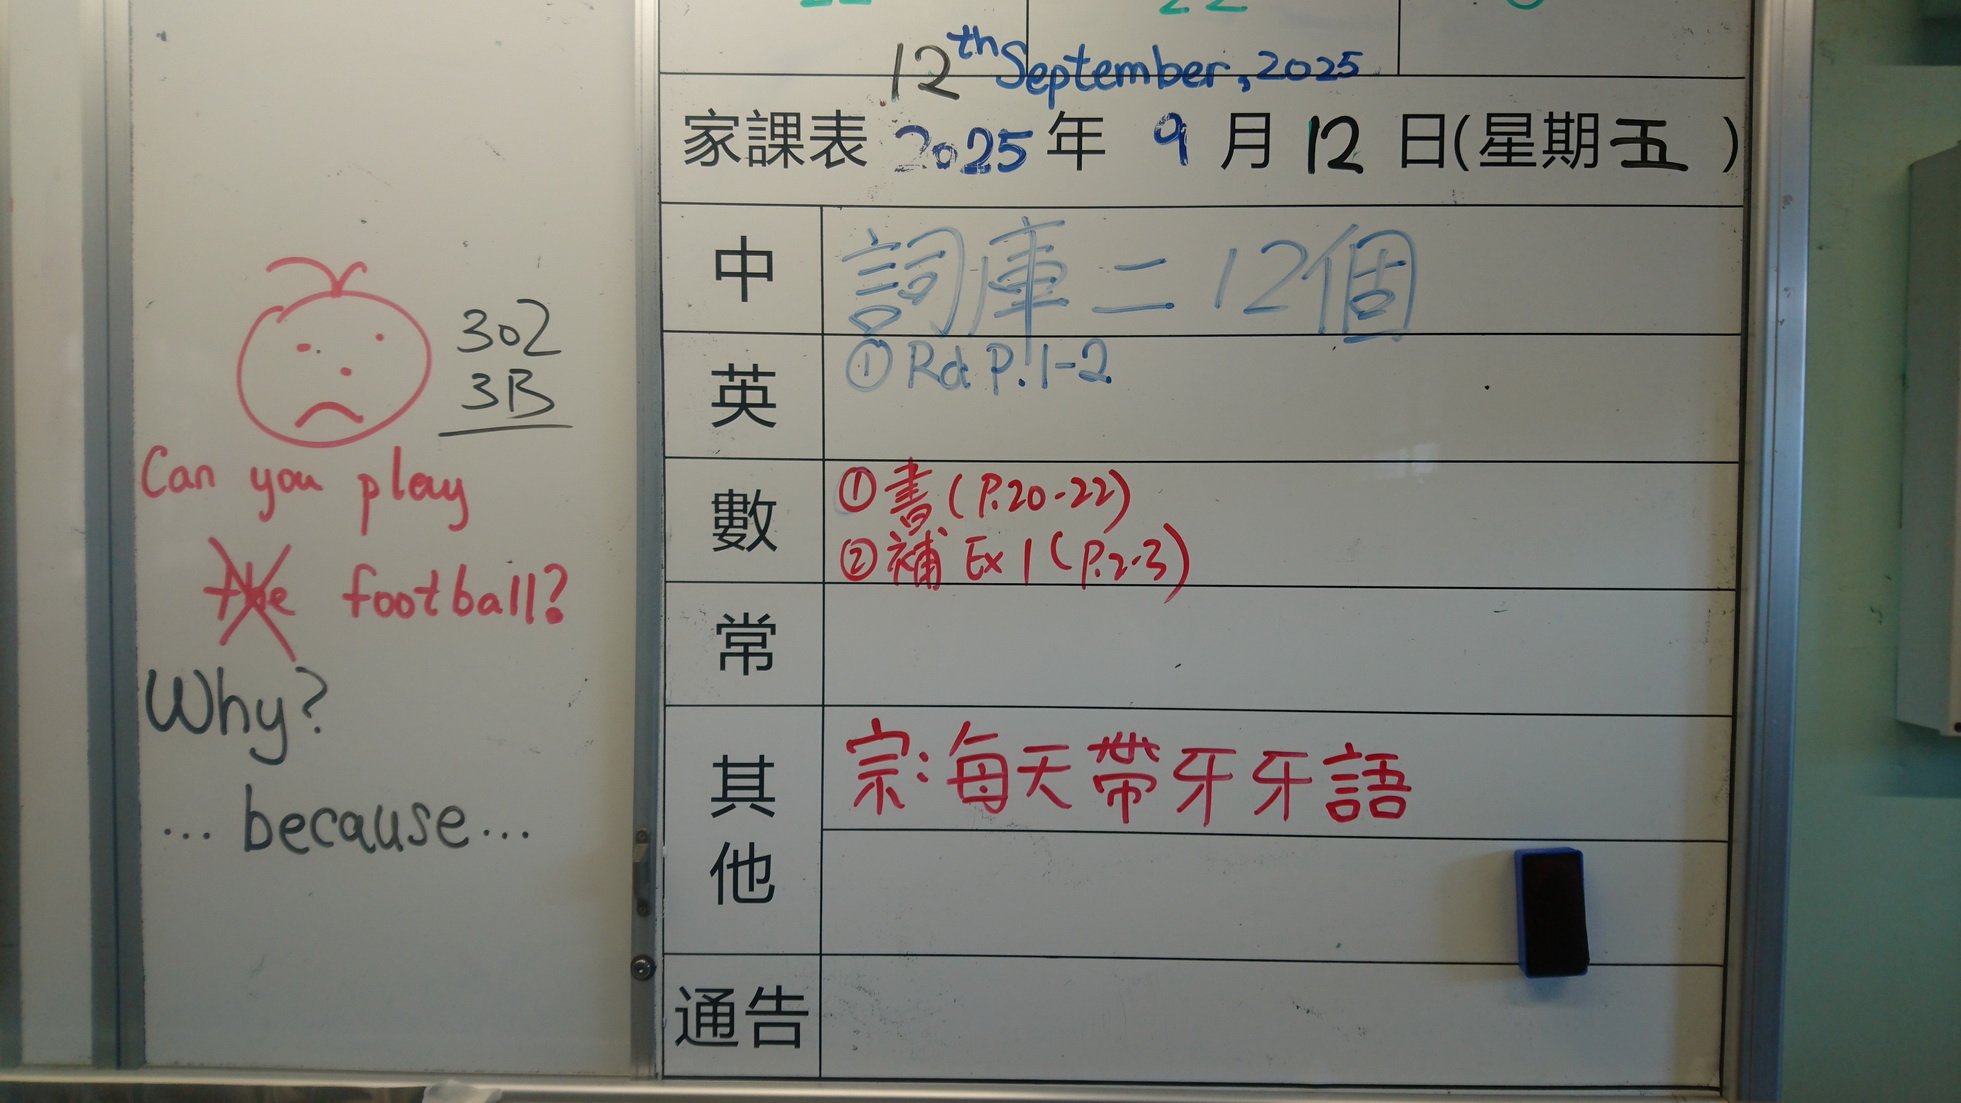 302
3B
Can you play
the football?
Why?
... because...
12th September, 2025
家課表 2025年 9月 12日(星期五)
中 詞庫二 12個
英 ① Rd P.1-2
數 ① 書(P.20-22)
② 補 Ex 1 (P.2-3)
常
其他 宗:每天帶牙牙語
通告